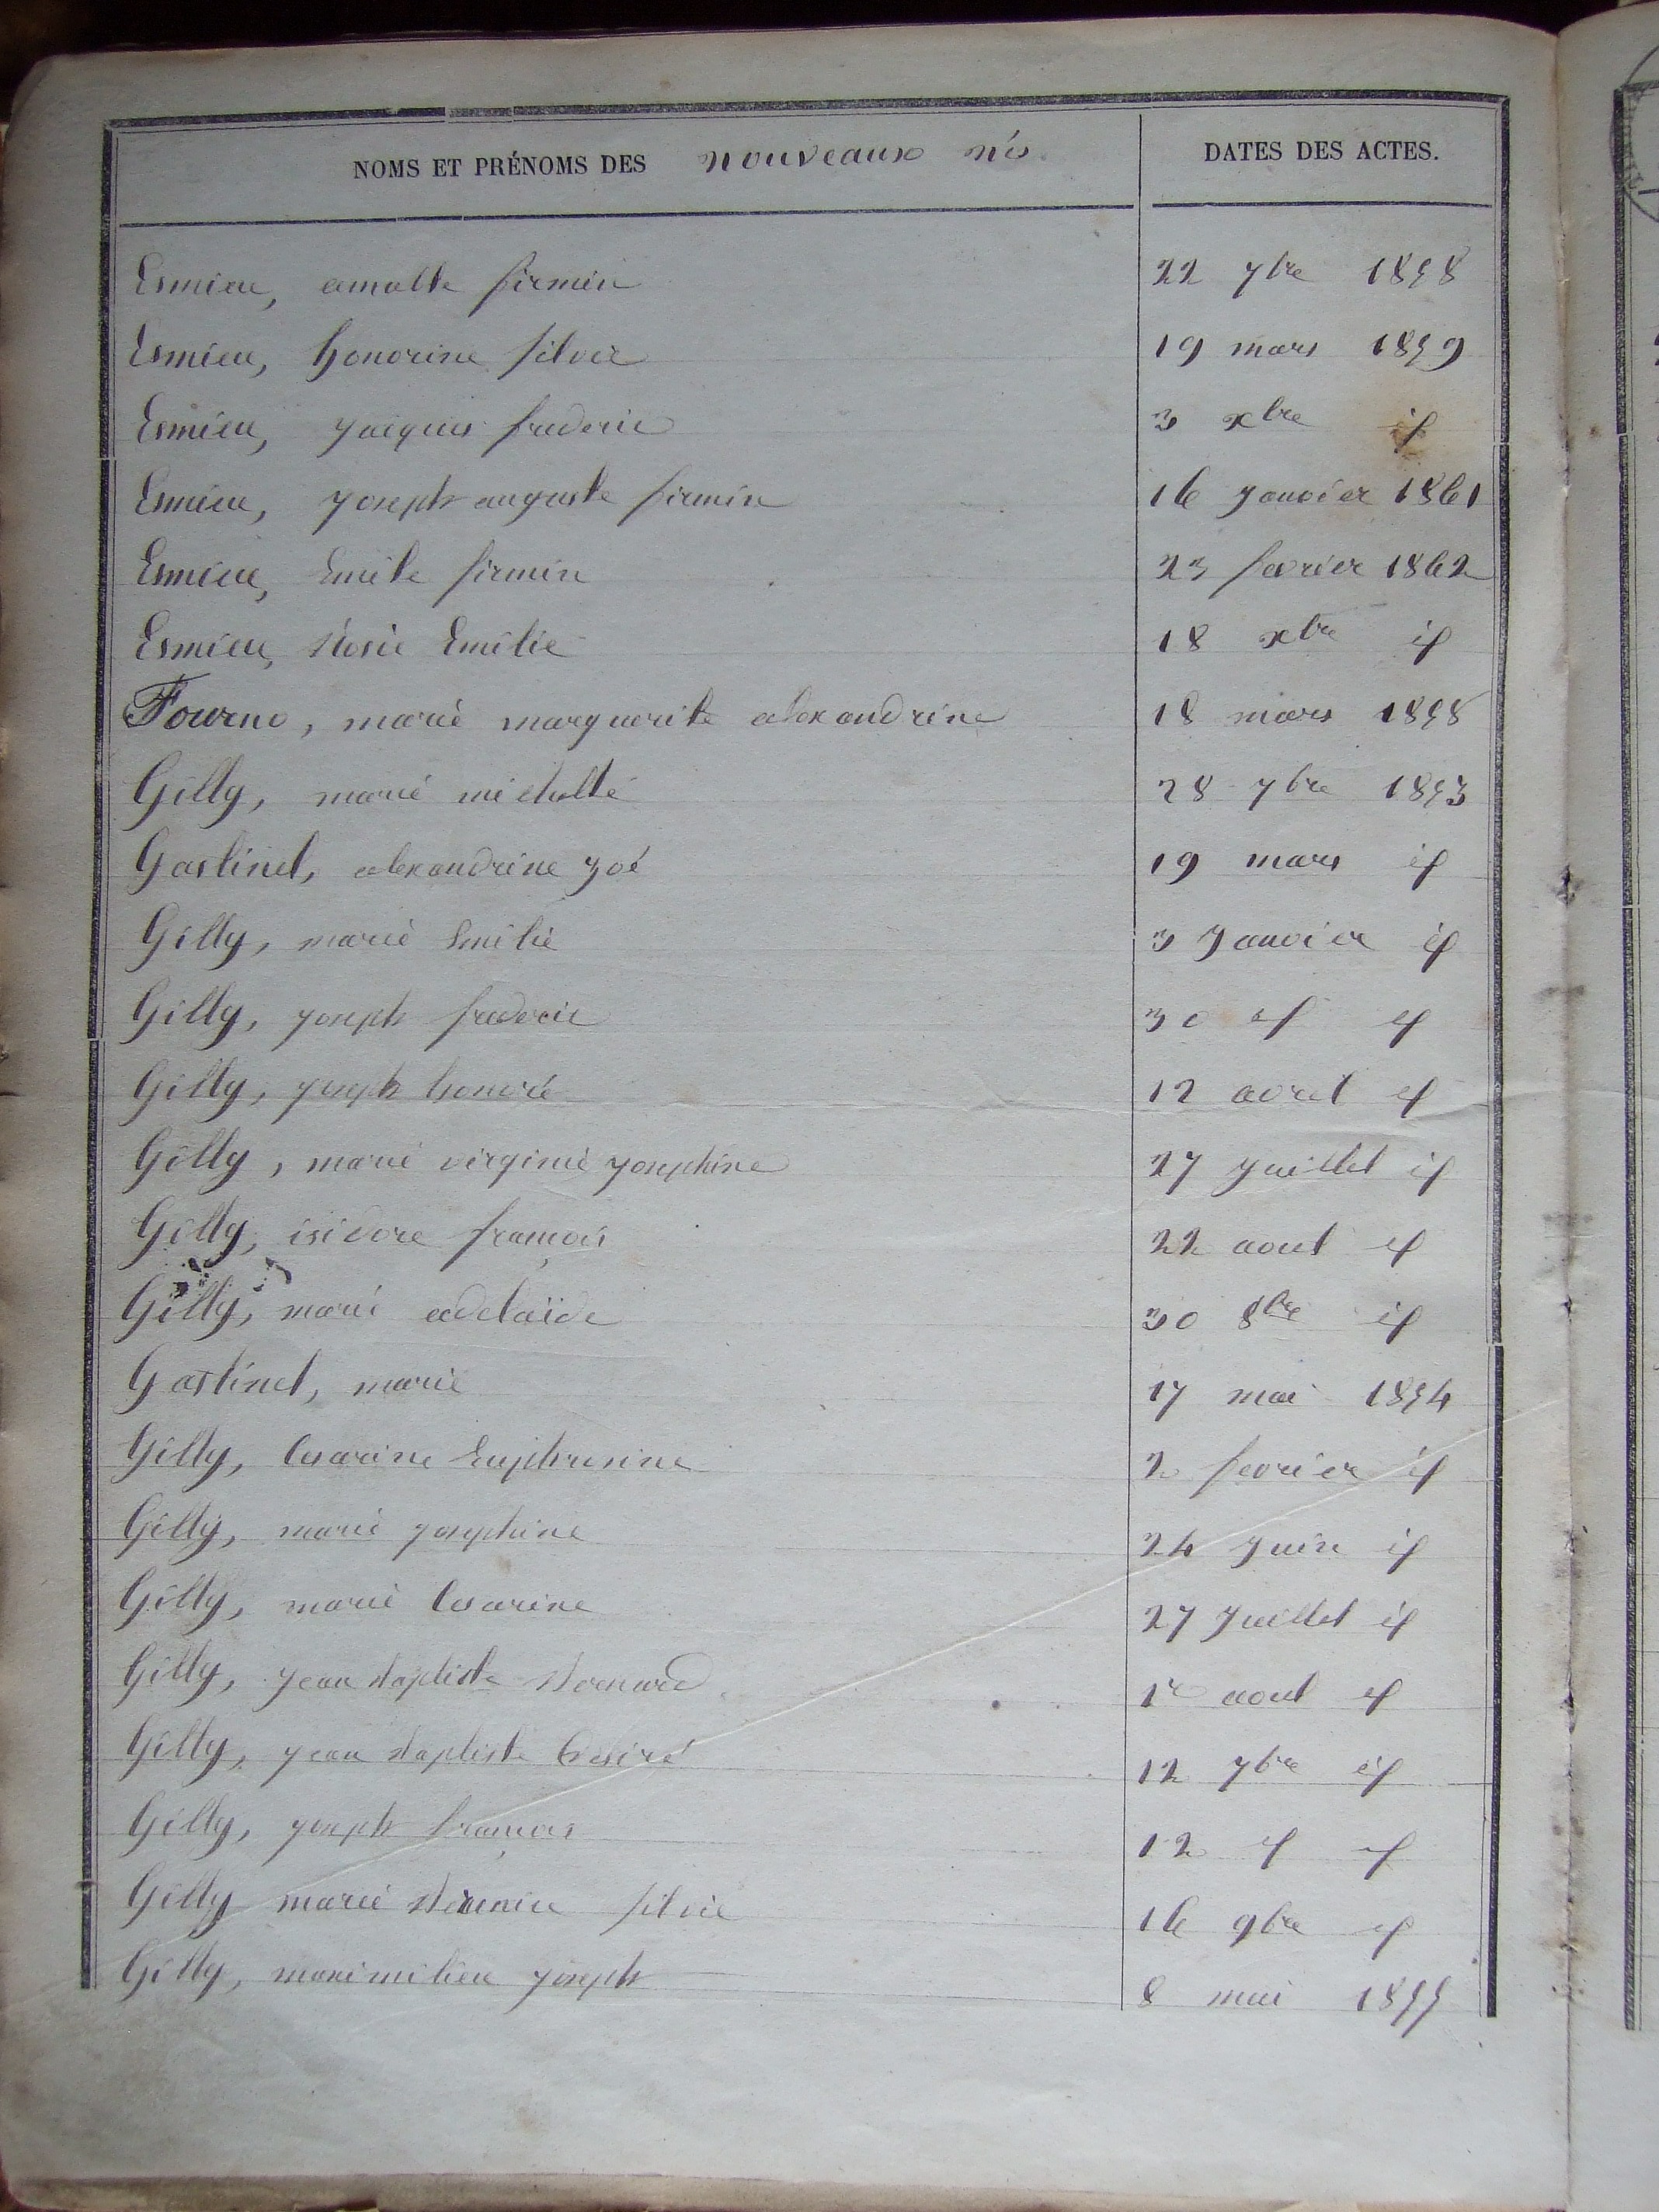 NOMS ET PRÉNOMS DES nouveaux nés. DATES DES ACTES.
Esmieu, amalte firmin 22 7bre 1858
Esmieu, honorine silvie 19 mars 1859
Esmieu, jacques frederic 3 xbre id
Esmieu, joseph auguste firmin 16 janvier 1861
Esmieu, Emile firmin 23 fevrier 1862
Esmieu, Rosie Emilie 18 xbre id
Fourno, marie marguerite alexandrine 18 mars 1858
Gilly, marie 28 7bre 1853
Gastinel, alexandrine zoé 19 mars id
Gilly, marie Emilie 3 janvier id
Gilly, joseph frederic 30 id id
Gilly, joseph honoré 12 avril id
Gilly, marie virginie josephine 27 juillet id
Gilly, isidore françois 22 aout id
Gilly, marie adelaïde 30 8bre id
Gastinel, marie 17 mai 1854
Gilly, Cesarine Euphrosine 2 fevrier id
Gilly, marie josephine 24 juin id
Gilly, marie Cesarine 27 juillet id
Gilly, jean Baptiste Bernard 1er aout id
Gilly, jean Baptiste Désiré 12 7bre id
Gilly, joseph françois 12 id id
Gilly marie silvie 16 9bre id
Gilly, maximilien joseph 8 mai 1855